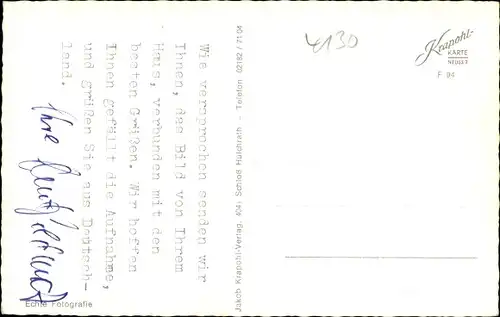 Wie versprochen senden wir
Ihnen, das Bild von Ihrem
Haus, verbunden mit den
besten Grüßen. Wir hoffen
Ihnen gefällt die Aufnahme,
und grüßen Sie aus Deutsch-
land.
Ihre
Echte Fotografie
Jakob Krapohl-Verlag, 4041 Schloß Hülchrath - Telefon 02182 / 71 04
4130
Krapohl-
KARTE
NEUSS
F 94